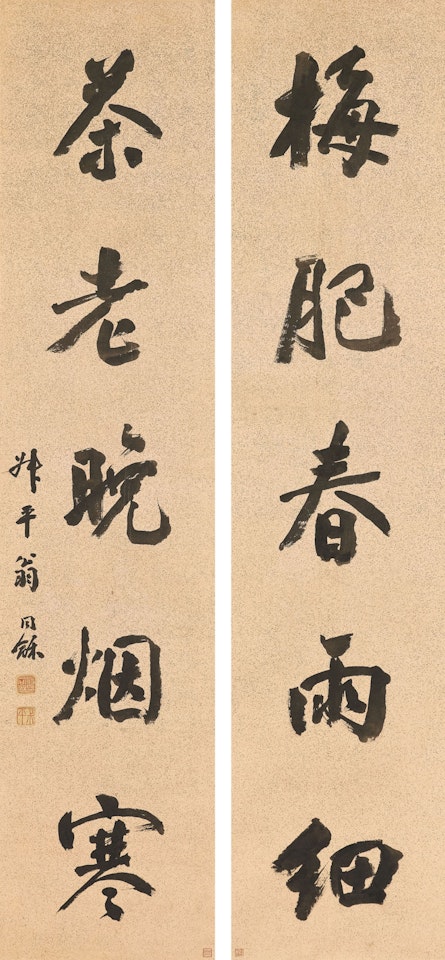 梅肥春雨細
茶老晚烟寒
叔平翁同龢